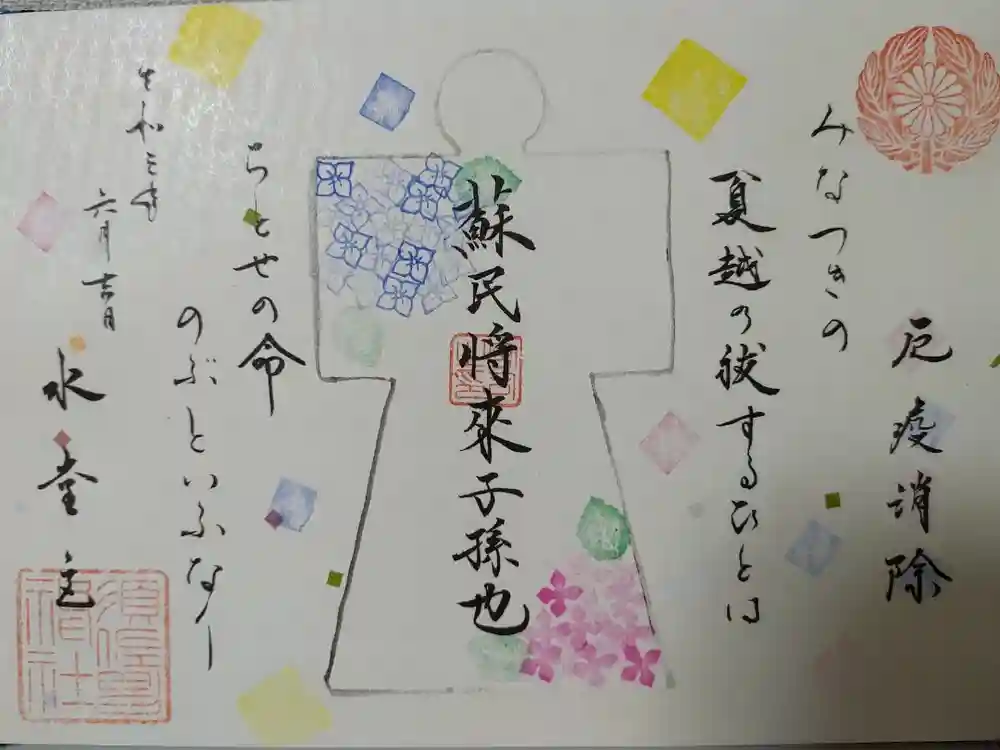 厄疫消除
みなつきの
夏越の祓するひとは
蘇民将來子孫也
ちとせの命
のぶといふなり
令和三年
六月吉日
水堂
須佐男
神社